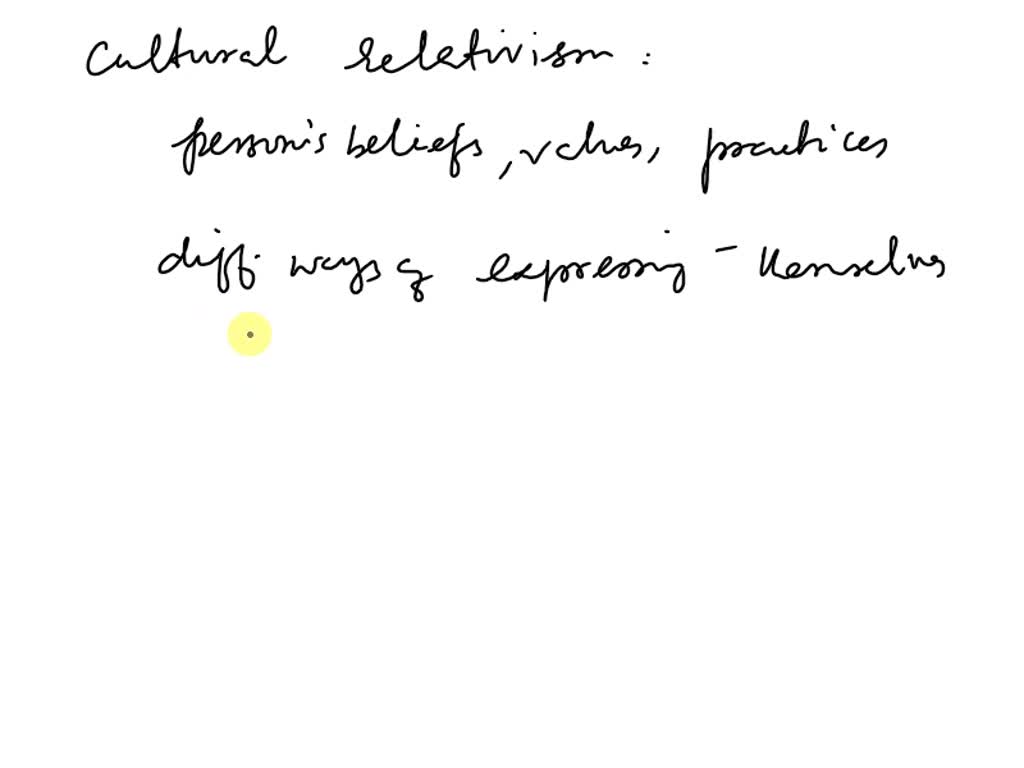 Cultural relativism :
person's beliefs, values, practices
diff. ways of expressing - themselves